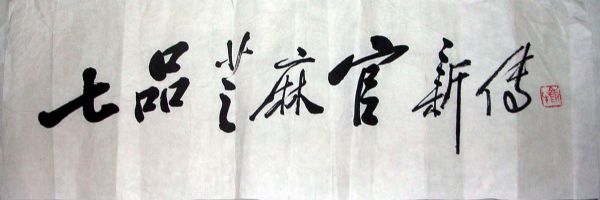 七品芝麻官新传